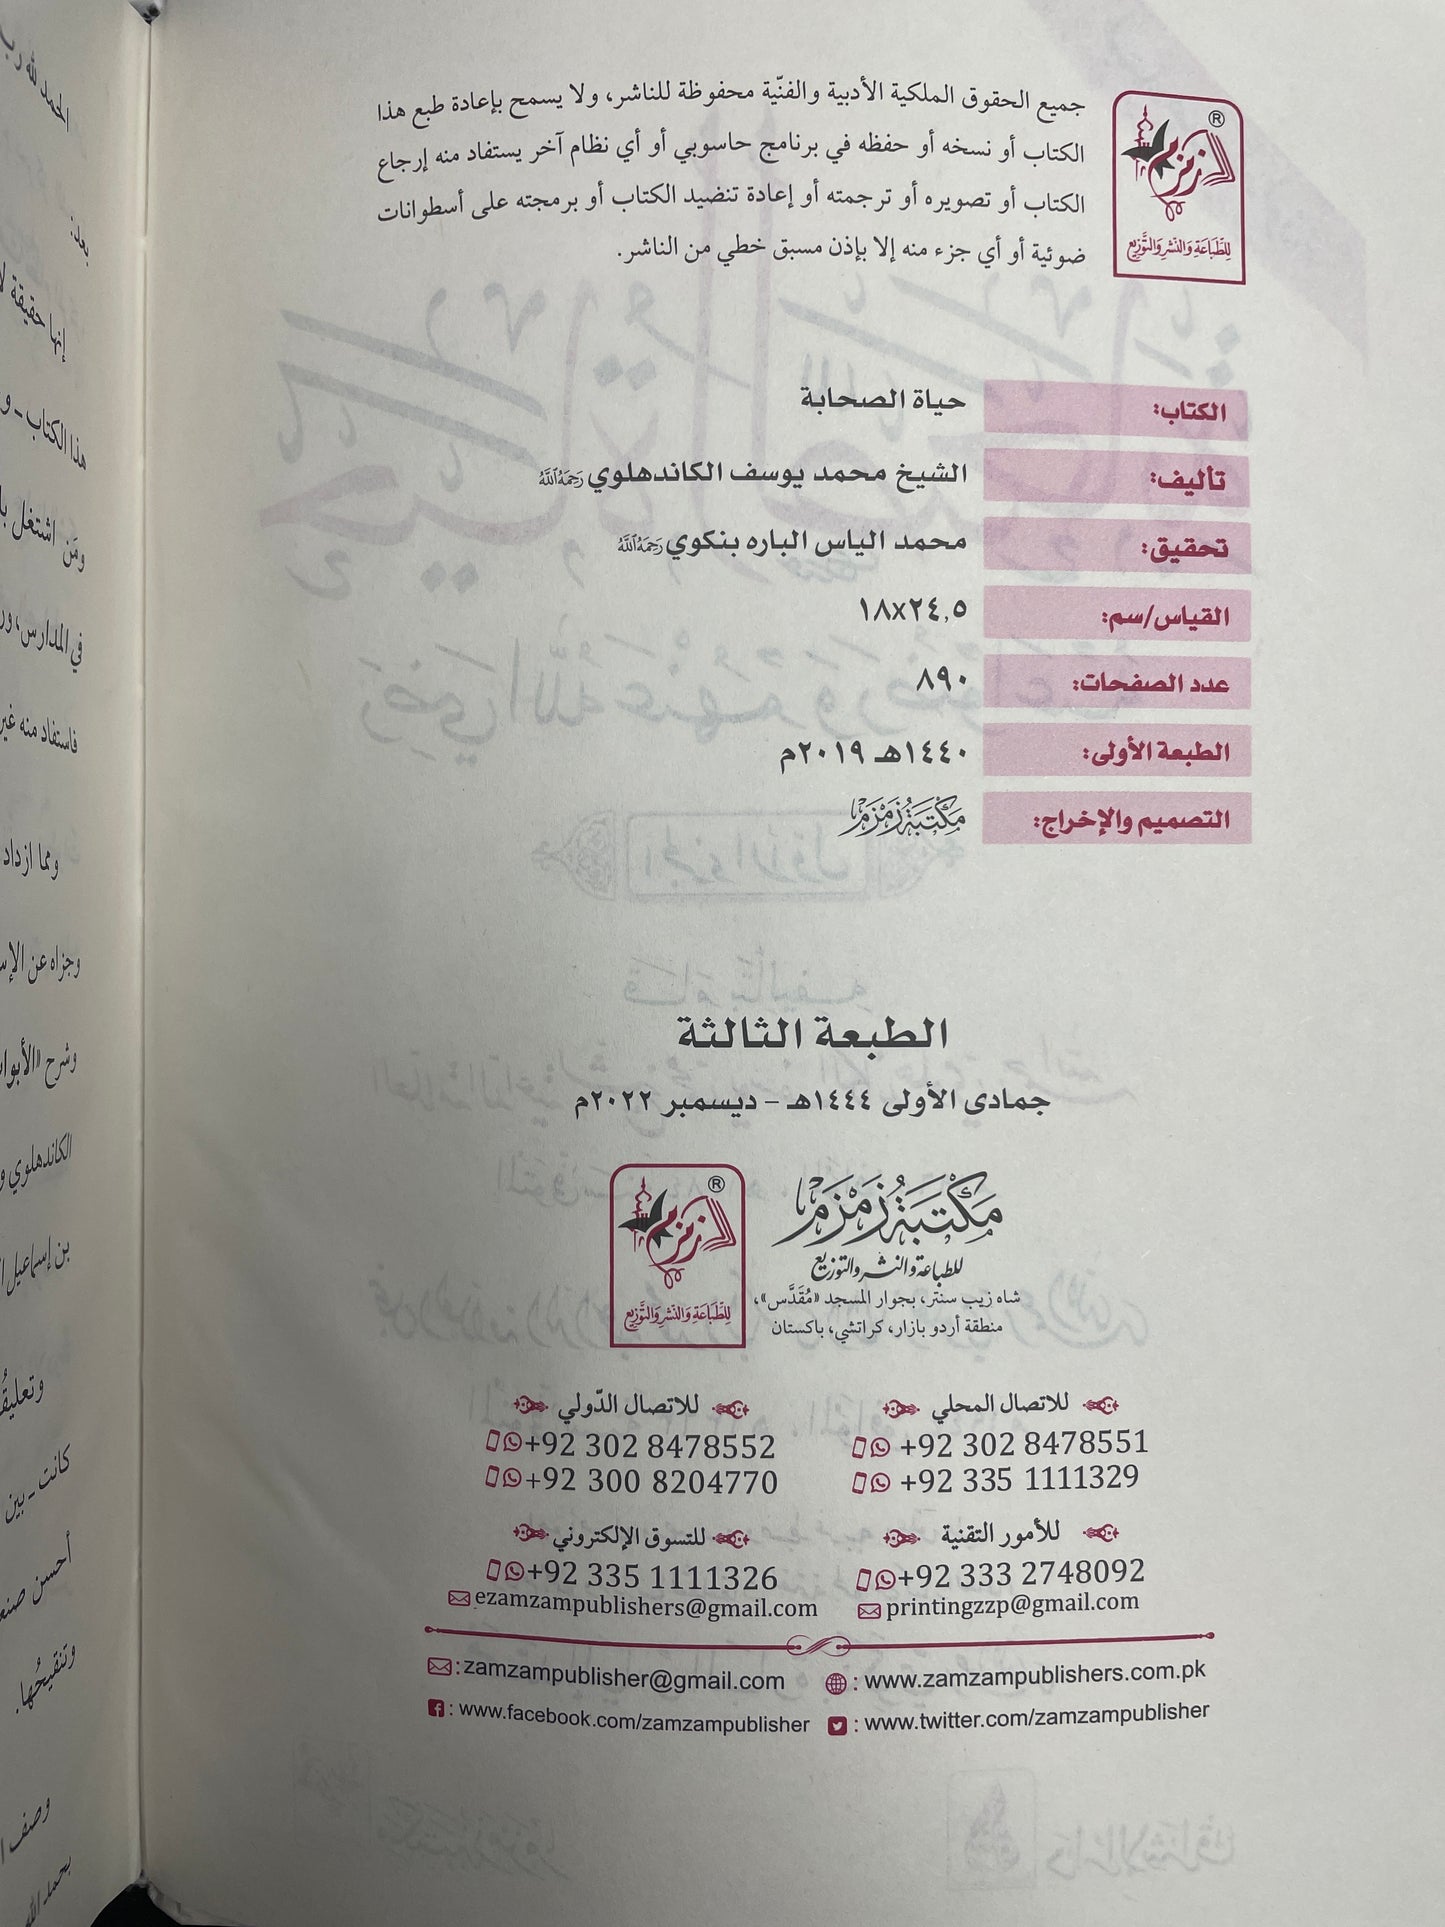 جميع الحقوق الملكية الأدبية والفنّية محفوظة للناشر، ولا يسمح بإعادة طبع هذا
الكتاب أو نسخه أو حفظه في برنامج حاسوبي أو أي نظام آخر يستفاد منه إرجاع
الكتاب أو تصويره أو ترجمته أو إعادة تنضيد الكتاب أو برمجته على أسطوانات
ضوئية أو أي جزء منه إلا بإذن مسبق خطي من الناشر.
®
زمزم
للطباعة والنشر والتوزيع
الكتاب: حياة الصحابة
تأليف: الشيخ محمد يوسف الكاندهلوي رَحِمَهُ ٱللَّهُ
تحقيق: محمد الياس الباره بنكوي رَحِمَهُ ٱللَّهُ
القياس/سم: ١٨x٢٤,٥
عدد الصفحات: ٨٩٠
الطبعة الأولى: ١٤٤٠هـ ٢٠١٩م
التصميم والإخراج: مكتبة زمزم
الطبعة الثالثة
جمادى الأولى ١٤٤٤هـ - ديسمبر ٢٠٢٢م
مكتبة زمزم
للطباعة والنشر والتوزيع
شاه زيب سنتر، بجوار المسجد «مُقَدَّس»،
منطقة أردو بازار، كراتشي، باكستان
®
زمزم
للطباعة والنشر والتوزيع
للاتصال المحلي
+92 302 8478551
+92 335 1111329
للاتصال الدّولي
+92 302 8478552
+92 300 8204770
للأمور التقنية
+92 333 2748092
printingzzp@gmail.com
للتسوق الإلكتروني
+92 335 1111326
ezamzampublishers@gmail.com
: zamzampublisher@gmail.com : www.zamzampublishers.com.pk
: www.facebook.com/zamzampublisher : www.twitter.com/zamzampublisher
الحمد لله رب
بعد:
إنها حقيقة
هذا الكتاب - و
ومَن اشتغل
في المدارس، و
فاستفاد منه
ومما ازداد
وجزاه عن
وشرح
الكاندهلوي و
بن إسماعيل
كانت - بين
أحسن
وتنقيحُها.
وصف
بحمد الله